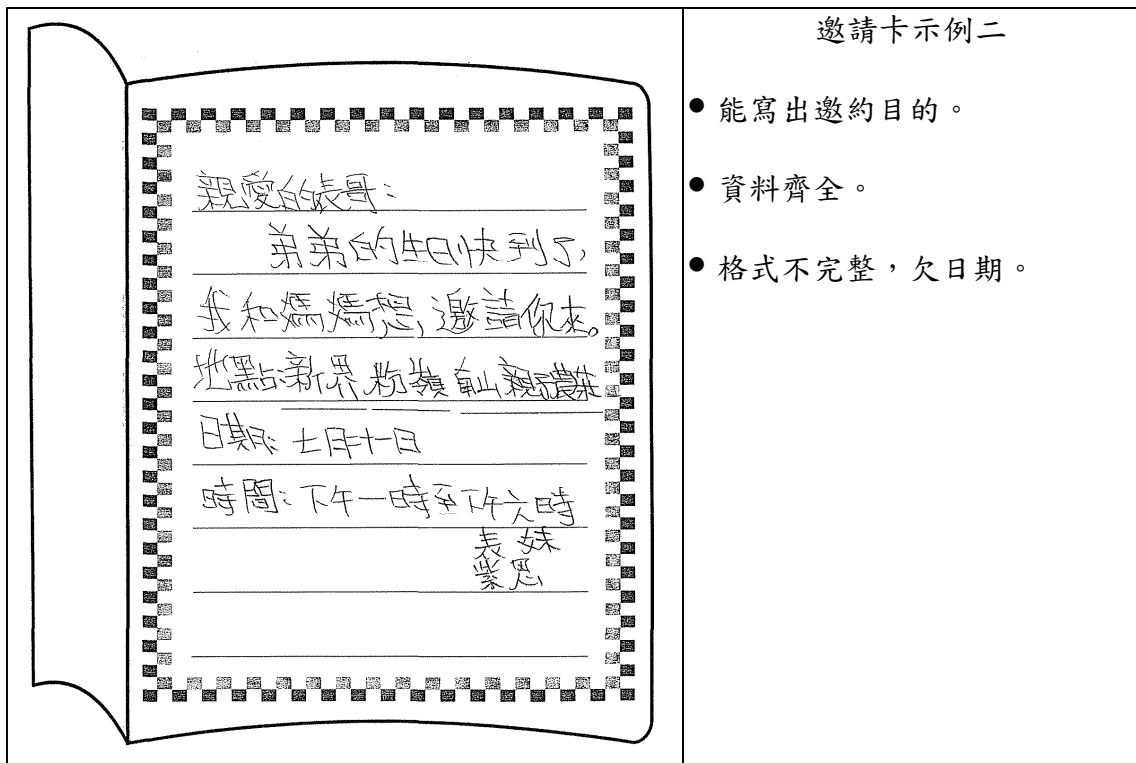 親愛的表哥：
弟弟的生日快到了，
我和媽媽想邀請你來。
地點：新界粉嶺 親
日期：七月十一日
時間：下午一時至下午六時
表妹
紫思
邀請卡示例二
● 能寫出邀約目的。
● 資料齊全。
● 格式不完整，欠日期。